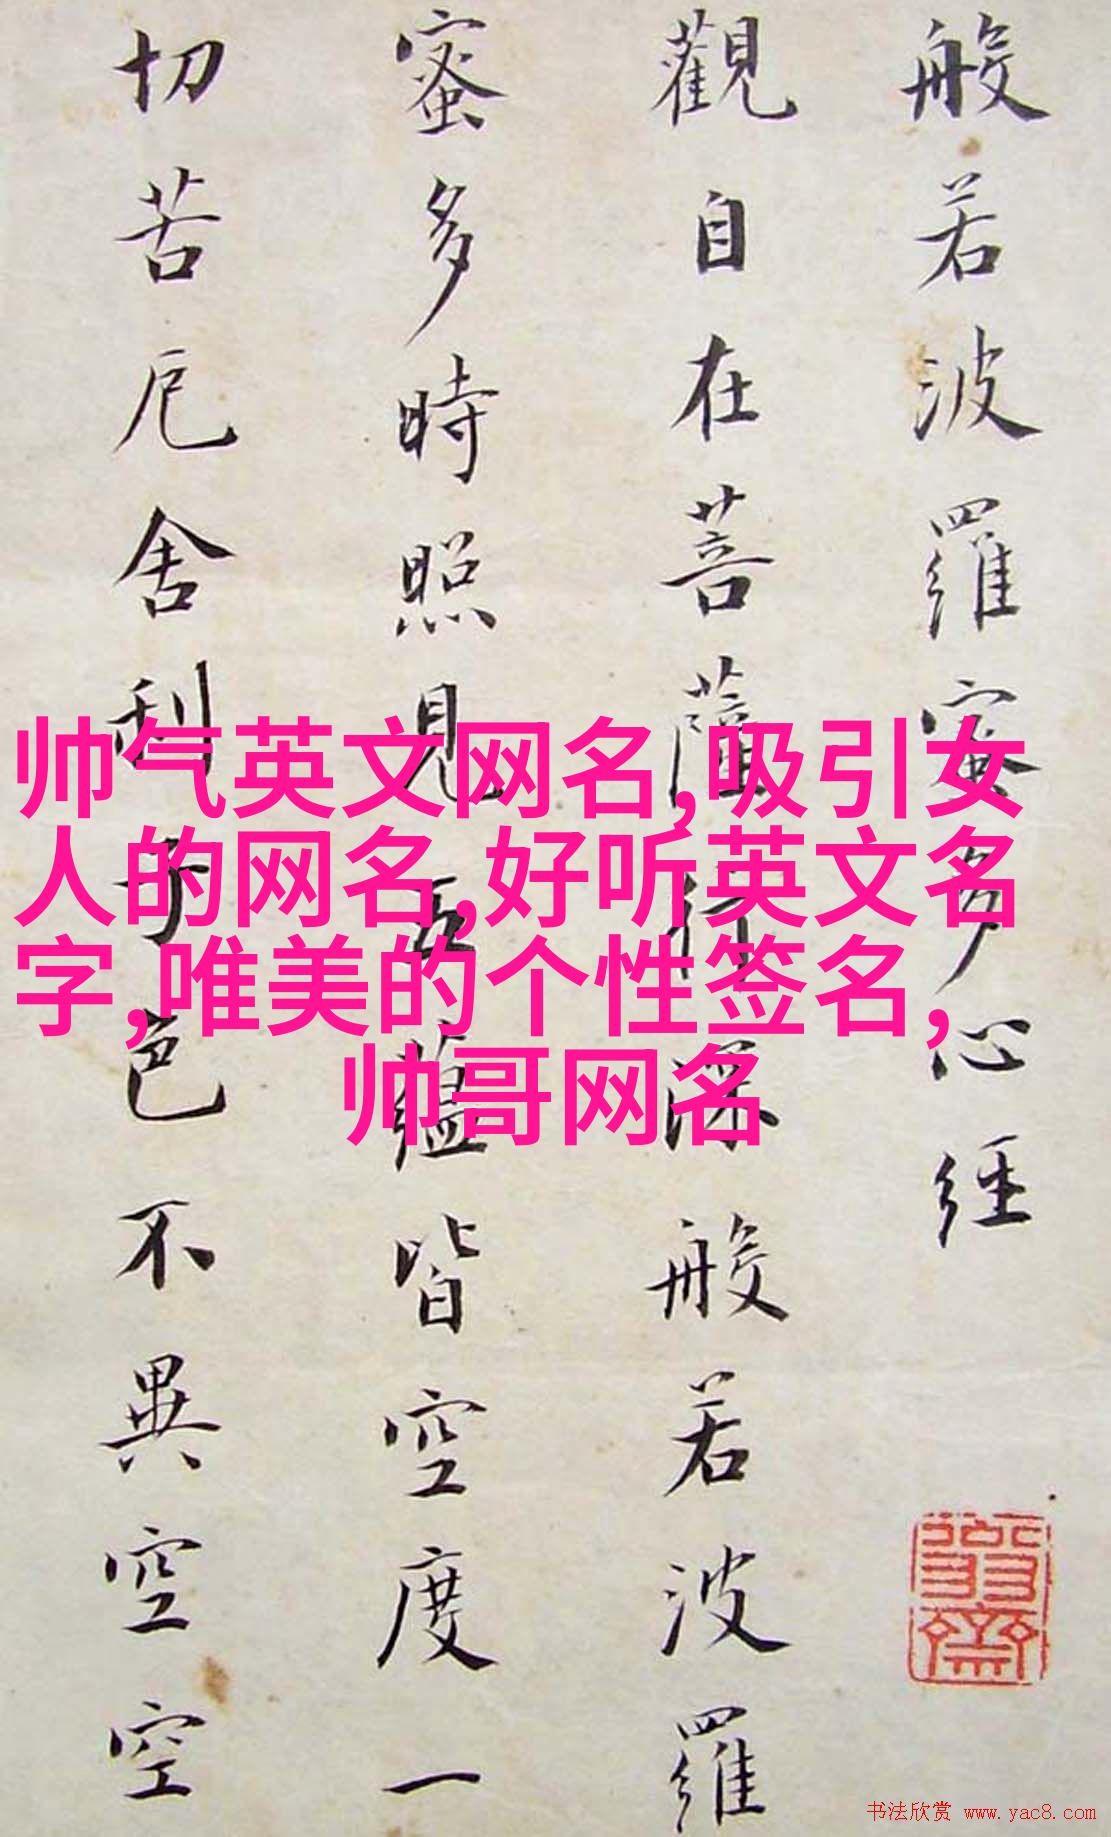 般若波羅蜜多心經
觀自在菩薩行深般若波羅
蜜多時照見五蘊皆空度一
切苦厄舍利子色不異空空
帅气英文网名,吸引女
人的网名,好听英文名
字,唯美的个性签名,
帅哥网名
书法欣赏 www.yac8.com